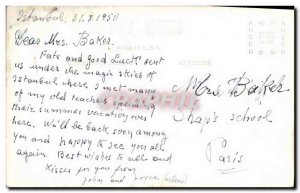 Istanbul, 21.8.1950
Dear Mrs. Baker.
Fate and good Luck sent
us under the magic skies of
Istanbul where I met many
of my old teachers spending
their summer vacation over
here. We'll be back soon among
you and happy to see you all
again. Best wishes to all and
Kisses to you from
John and
Mrs Baker
School
Paris